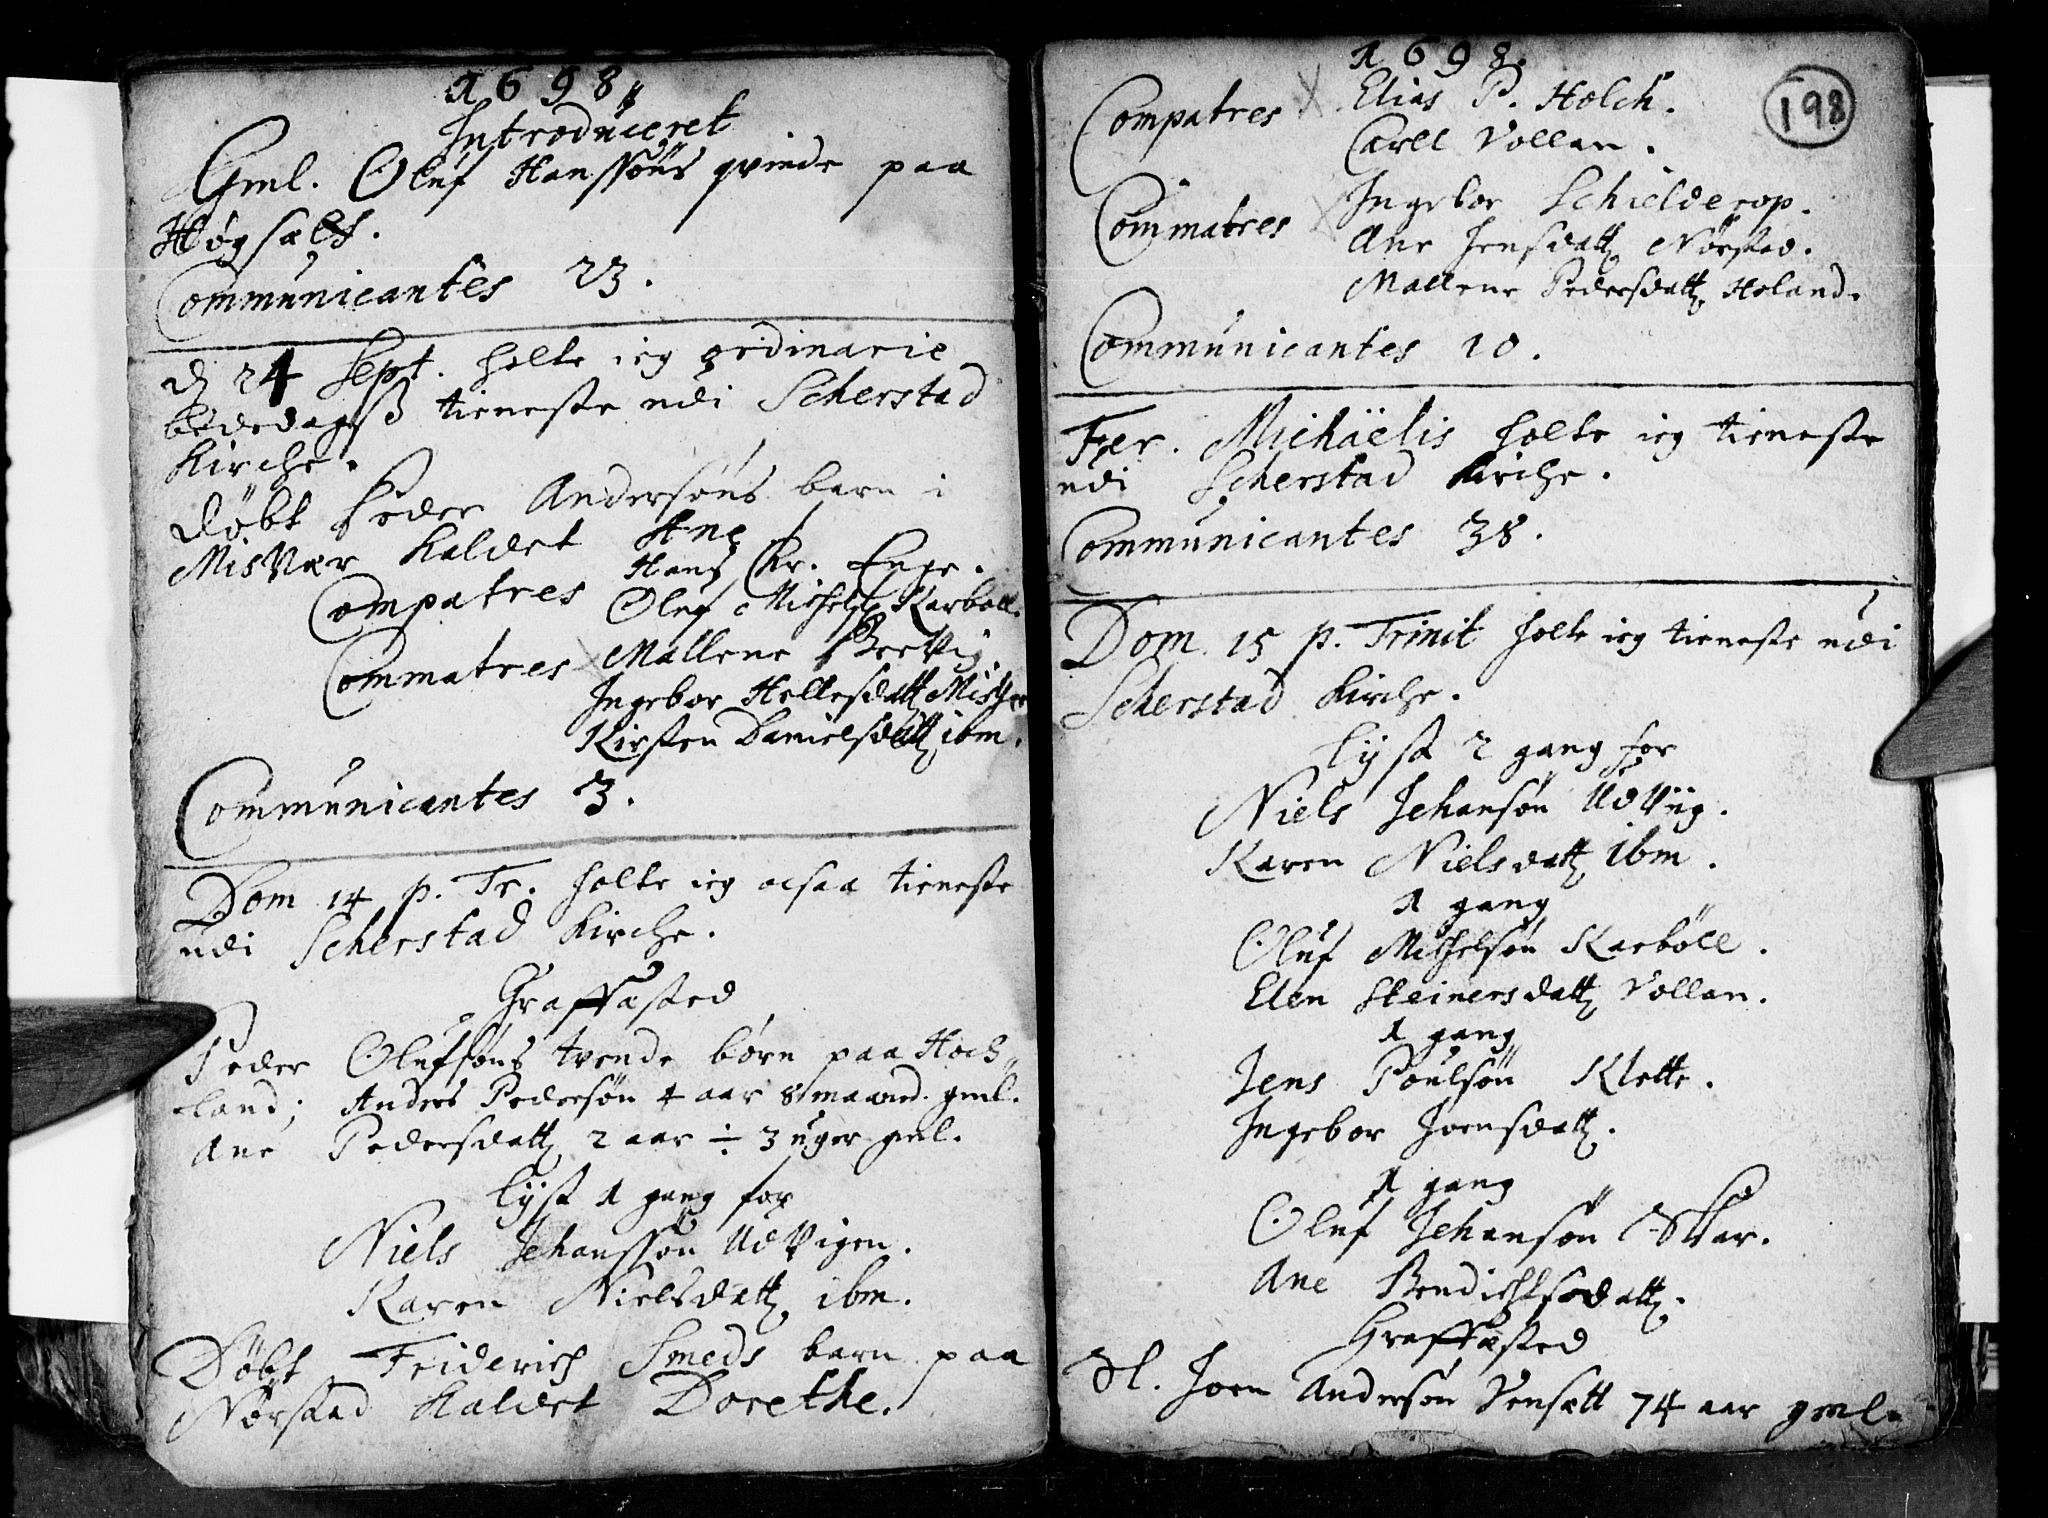 1698.
Introduceret
Gml. Oluf Hanssøns qvinde paa
Høgsælt.
Communicantes 23.
d 24 Sept. holte ieg ordinarie
bededagß tieneste udi Scherstad
Kirche.
Døbt Peder Andersøns barn i
Misvær kaldet Ane
Compatres Hans Chr. Enge.
Oluf Michels. Karbøll.
Commatres Mallene Breviig
Ingebor Hellesdatt Misvær
Kirsten Danielsdatt ibm.
Communicantes 3.
Dom 14 p. Tr. holte ieg ocsaa tieneste
udi Scherstad Kirche.
Graffæsted
Peder Olufsøns tvende børn paa Hoch
land; Anders Pedersøn 4 aar 8 maaned. gml.
Ane Pedersdatt 2 aar ÷ 3 uger gml.
lyst 1 gang for
Niels Jehanssøn Udvigen.
Karen Nielsdatt ibm.
Døbt Friderich Smeds barn paa
Nørstad kaldet Dorethe.
1698.
198
Compatres Elias P. Holch.
Carll Vollan.
Commatres Ingebor Schielderop.
Ane Jensdatt Nørstad.
Mallene Pedersdatt Holand.
Communicantes 10.
Fer. Michäelis holte ieg tieneste
udi Scherstad Kirche.
Communicantes 38.
Dom 15 p. Trinit holte ieg tieneste udi
Scherstad Kirche.
lyst 2 gang for
Niels Jehansøn Udviig.
Karen Nielsdatt ibm.
1 gang
Oluf Michelsøn Karbøll.
Elen Steinersdatt Vollan.
1 gang
Jens Poulsøn Klette.
Ingebor Joensdatt.
1 gang
Oluf Jehansøn Skar.
Ane Bendichtsdatt.
Graffæsted
Sl. Joen Andersøn Vensætt 74 aar gml.